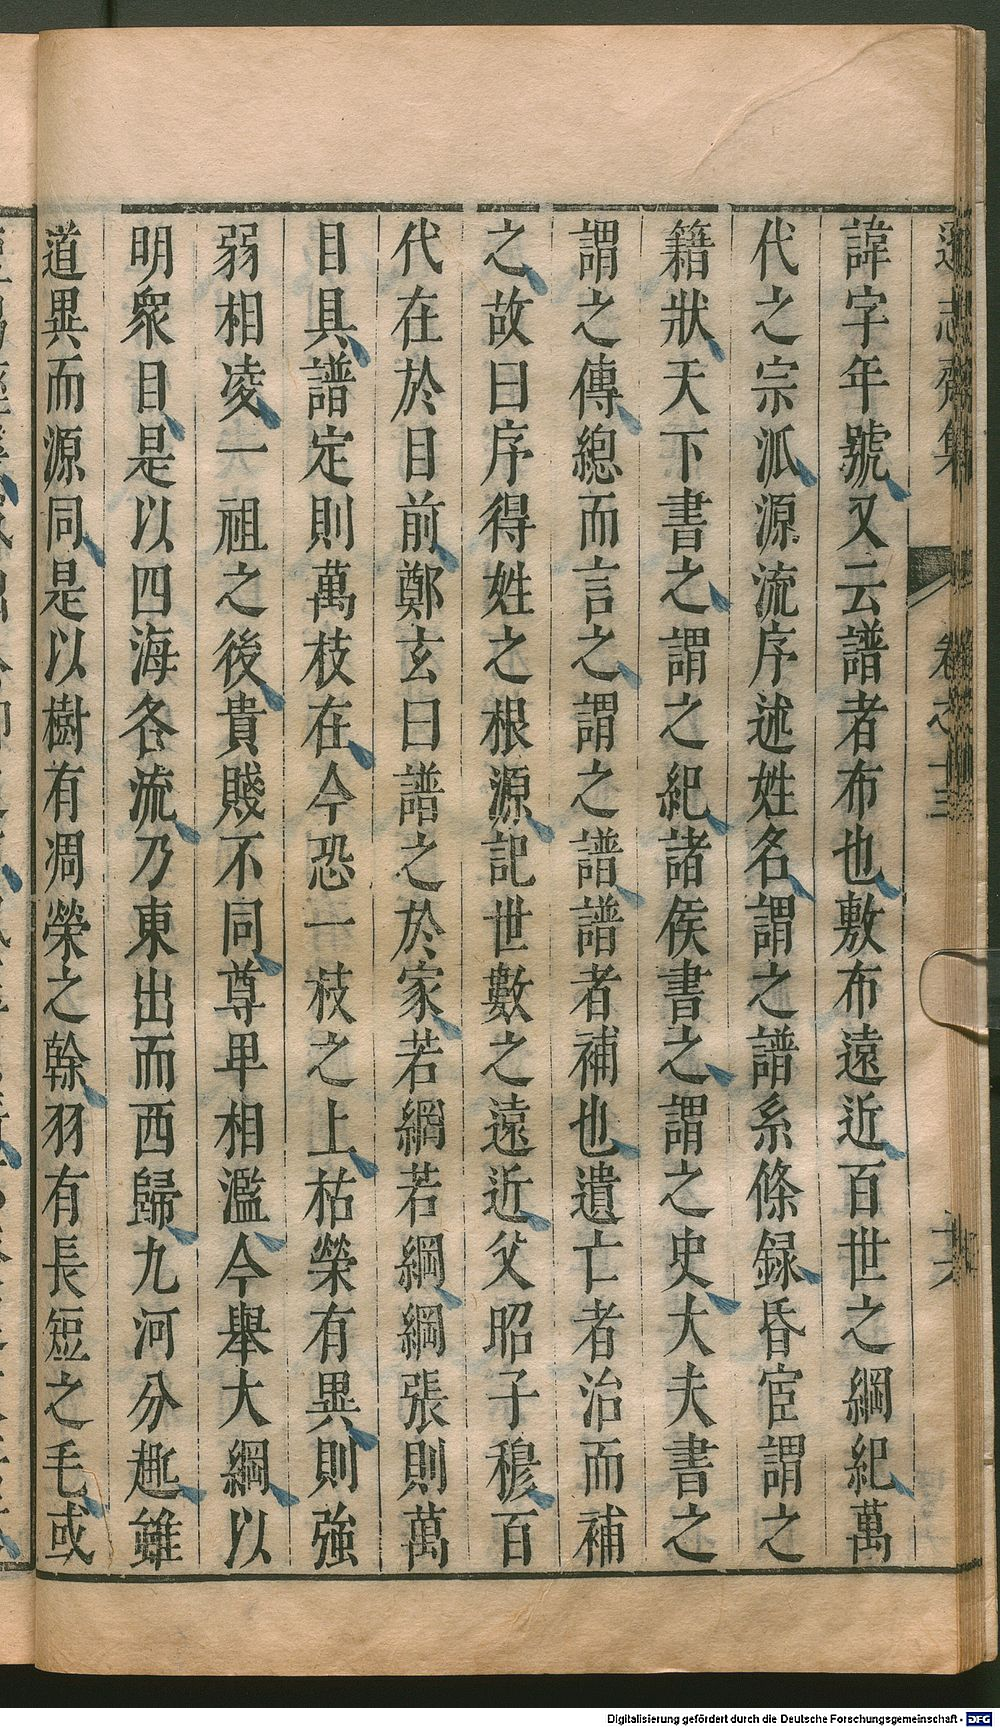 遜志齋集 卷之十三
諱字年號又云譜者布也敷布遠近百世之綱紀萬
代之宗派源流序述姓名謂之譜系條録昏宦謂之
籍狀天下書之謂之紀諸侯書之謂之史大夫書之
謂之傳總而言之謂之譜譜者補也遺亡者治而補
之故曰序得姓之根源記世數之遠近父昭子穆百
代在於目前鄭玄曰譜之於家若網若綱綱張則萬
目具譜定則萬枝在今恐一枝之上枯榮有異則強
弱相凌一祖之後貴賤不同尊卑相濫今舉大綱以
明衆目是以四海各流乃東出而西歸九河分趣雖
道異而源同是以樹有凋榮之幹羽有長短之毛或
Digitalisierung gefördert durch die Deutsche Forschungsgemeinschaft - DFG